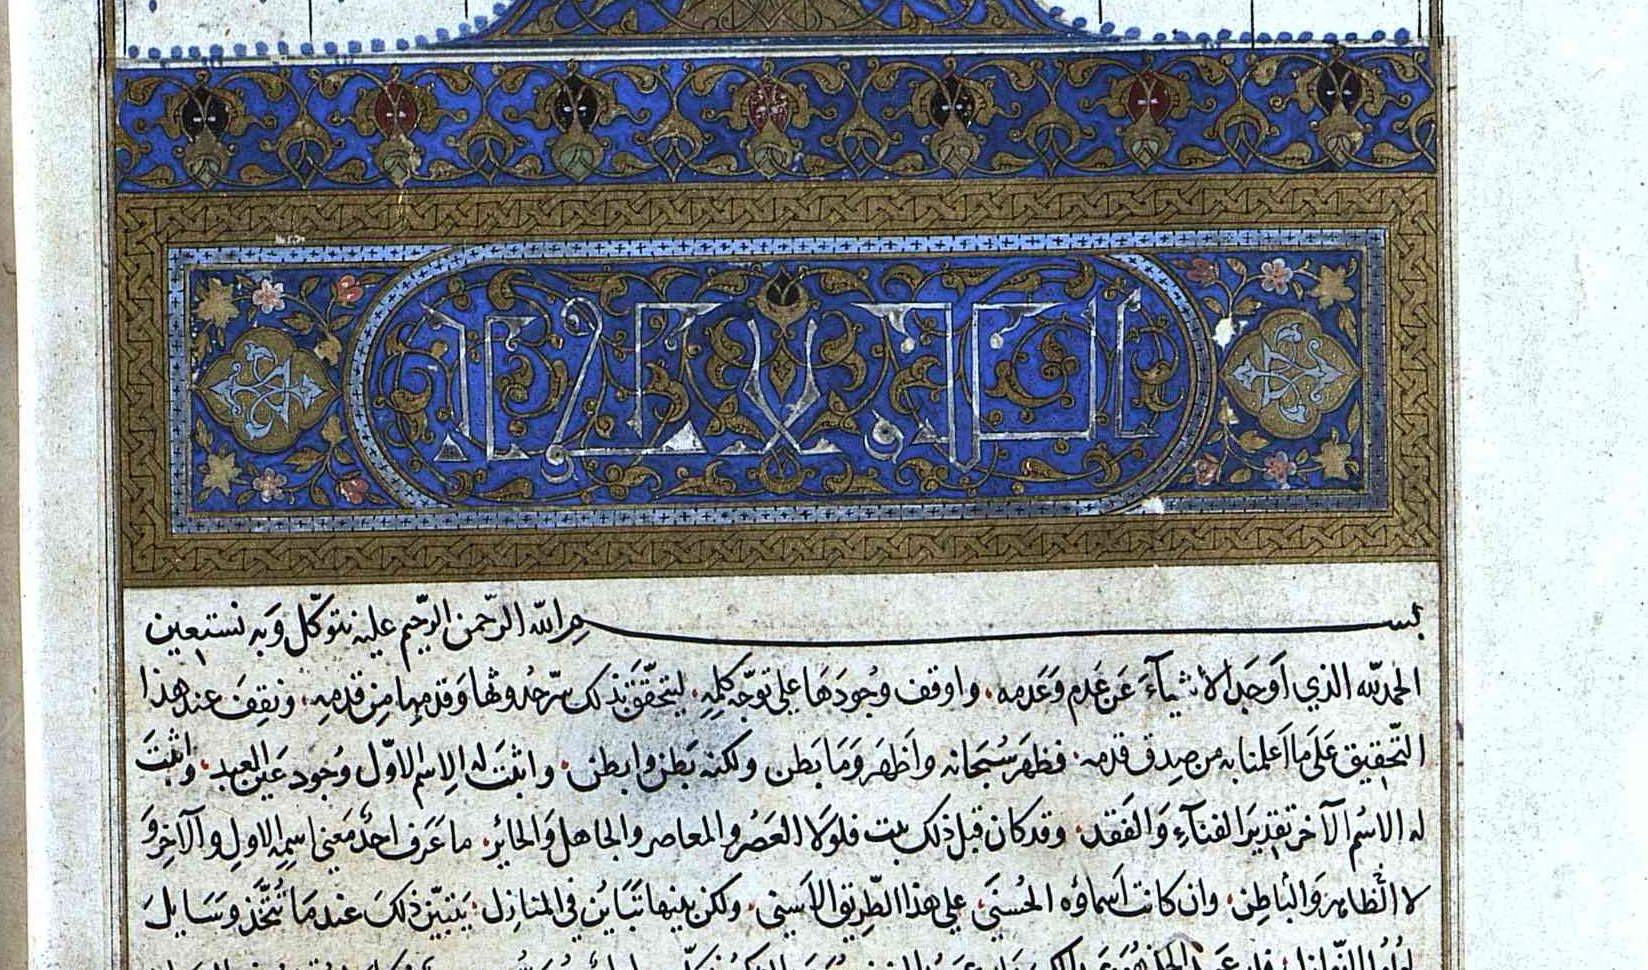 بسم الله الرحمن الرحيم عليه نتوكل وبه نستعين
الحمد لله الذي أوجد الأشيآءَ عَن عَدم وَعَدمه، واوقف وجُودَهَا على توجّه كلمِهِ، ليتحقّقَ بذلك سرّ حدُوثها وَقدمهِا مِن قدمهِ، ونقِفَ عند هذا
التّحقِيق عَلىَ ما اَعلمنا به من صِدق قدمه، فظهرَ سُبحَانه واَظهَرَ وَمَا بَطن ولكنه بَطن وابطن، واثبتَ له الاِسم الاوّل وجُود عَين العبد، واثبتَ
له الاسْم الآخر تقديرَ الفنآءِ وَالفَقد، وقد كان قبل ذلك ثبت فلولاَ العَصرُ والمعاصر والجاهل وَالخابر، ما عَرف احدٌ مَعني اسمِهِ الاول والآخِر وَ
لا الظاهر وَالباطِن، وان كانت اَسماؤه الحُسنيَ، على هذا الطّريق الاَسني، ولكن بينها تَبَايُن في المنازِل، يَتبيّن ذلكَ عند مَا تُتّخذ وسَايلَ